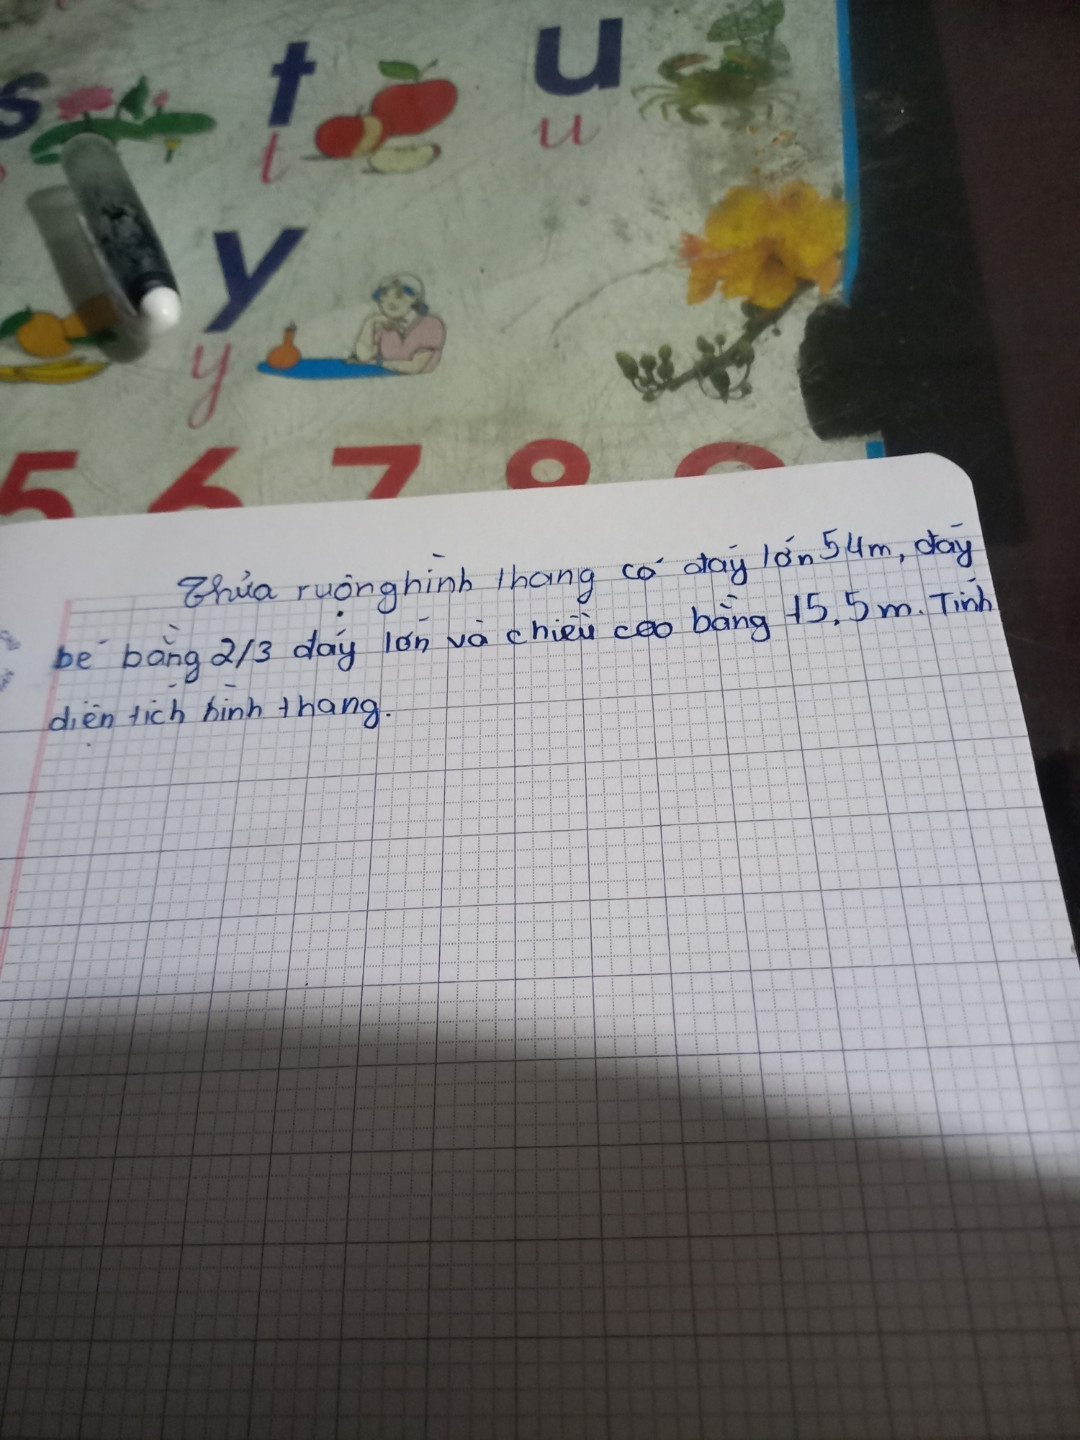 s t u
t u
y
y
5 6 7 8 9
Thửa ruộng hình thang có đáy lớn 54m, đáy
bé bằng 2/3 đáy lớn và chiều cao bằng 15,5m. Tính
diện tích hình thang.